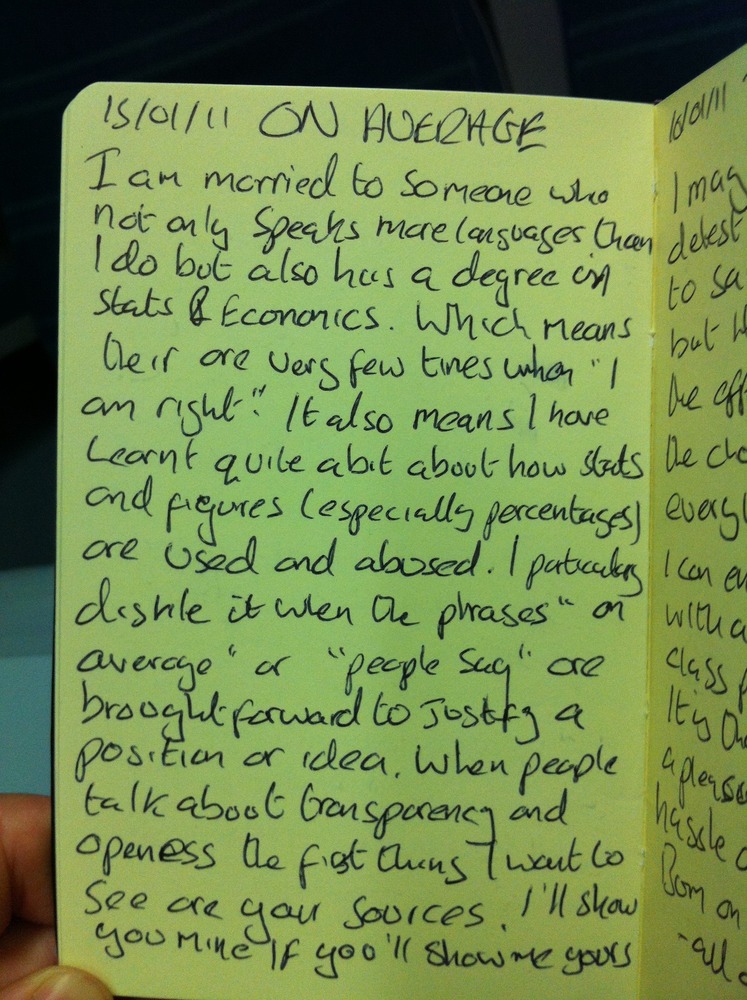 15/01/11 ON AVERAGE
I am married to someone who
not only speaks more languages than
I do but also has a degree in
stats & Economics. Which means
their are very few times when "I
am right". It also means I have
Learnt quite a bit about how stats
and figures (especially percentages)
are used and abused. I particularly
dislike it when the phrases "on
average" or "people say" are
brought forward to justify a
position or idea. When people
talk about transparency and
openess the first thing I want to
see are your sources. I'll show
you mine if you'll show me yours
16/01/11
I may
detest
to sa
but
the eff
the
every
I can en
with a
class p
It is
a pleas
hassle
Born on
-all